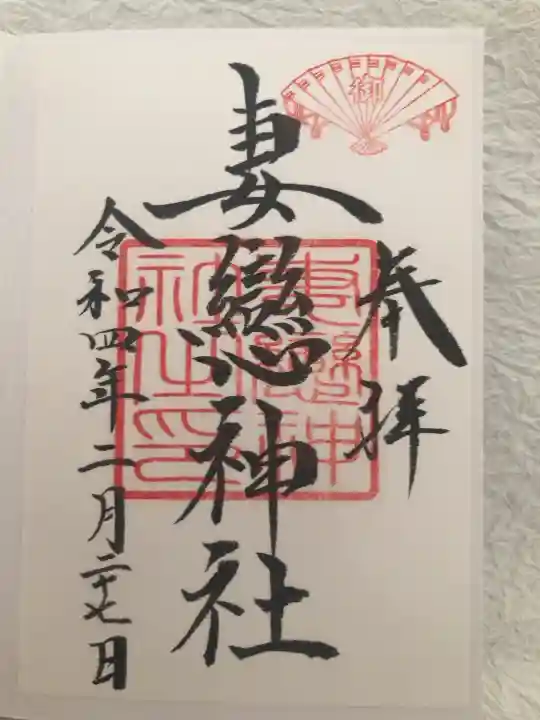 奉拝
妻戀神社
令和四年二月二十七日
御
妻戀神社之印